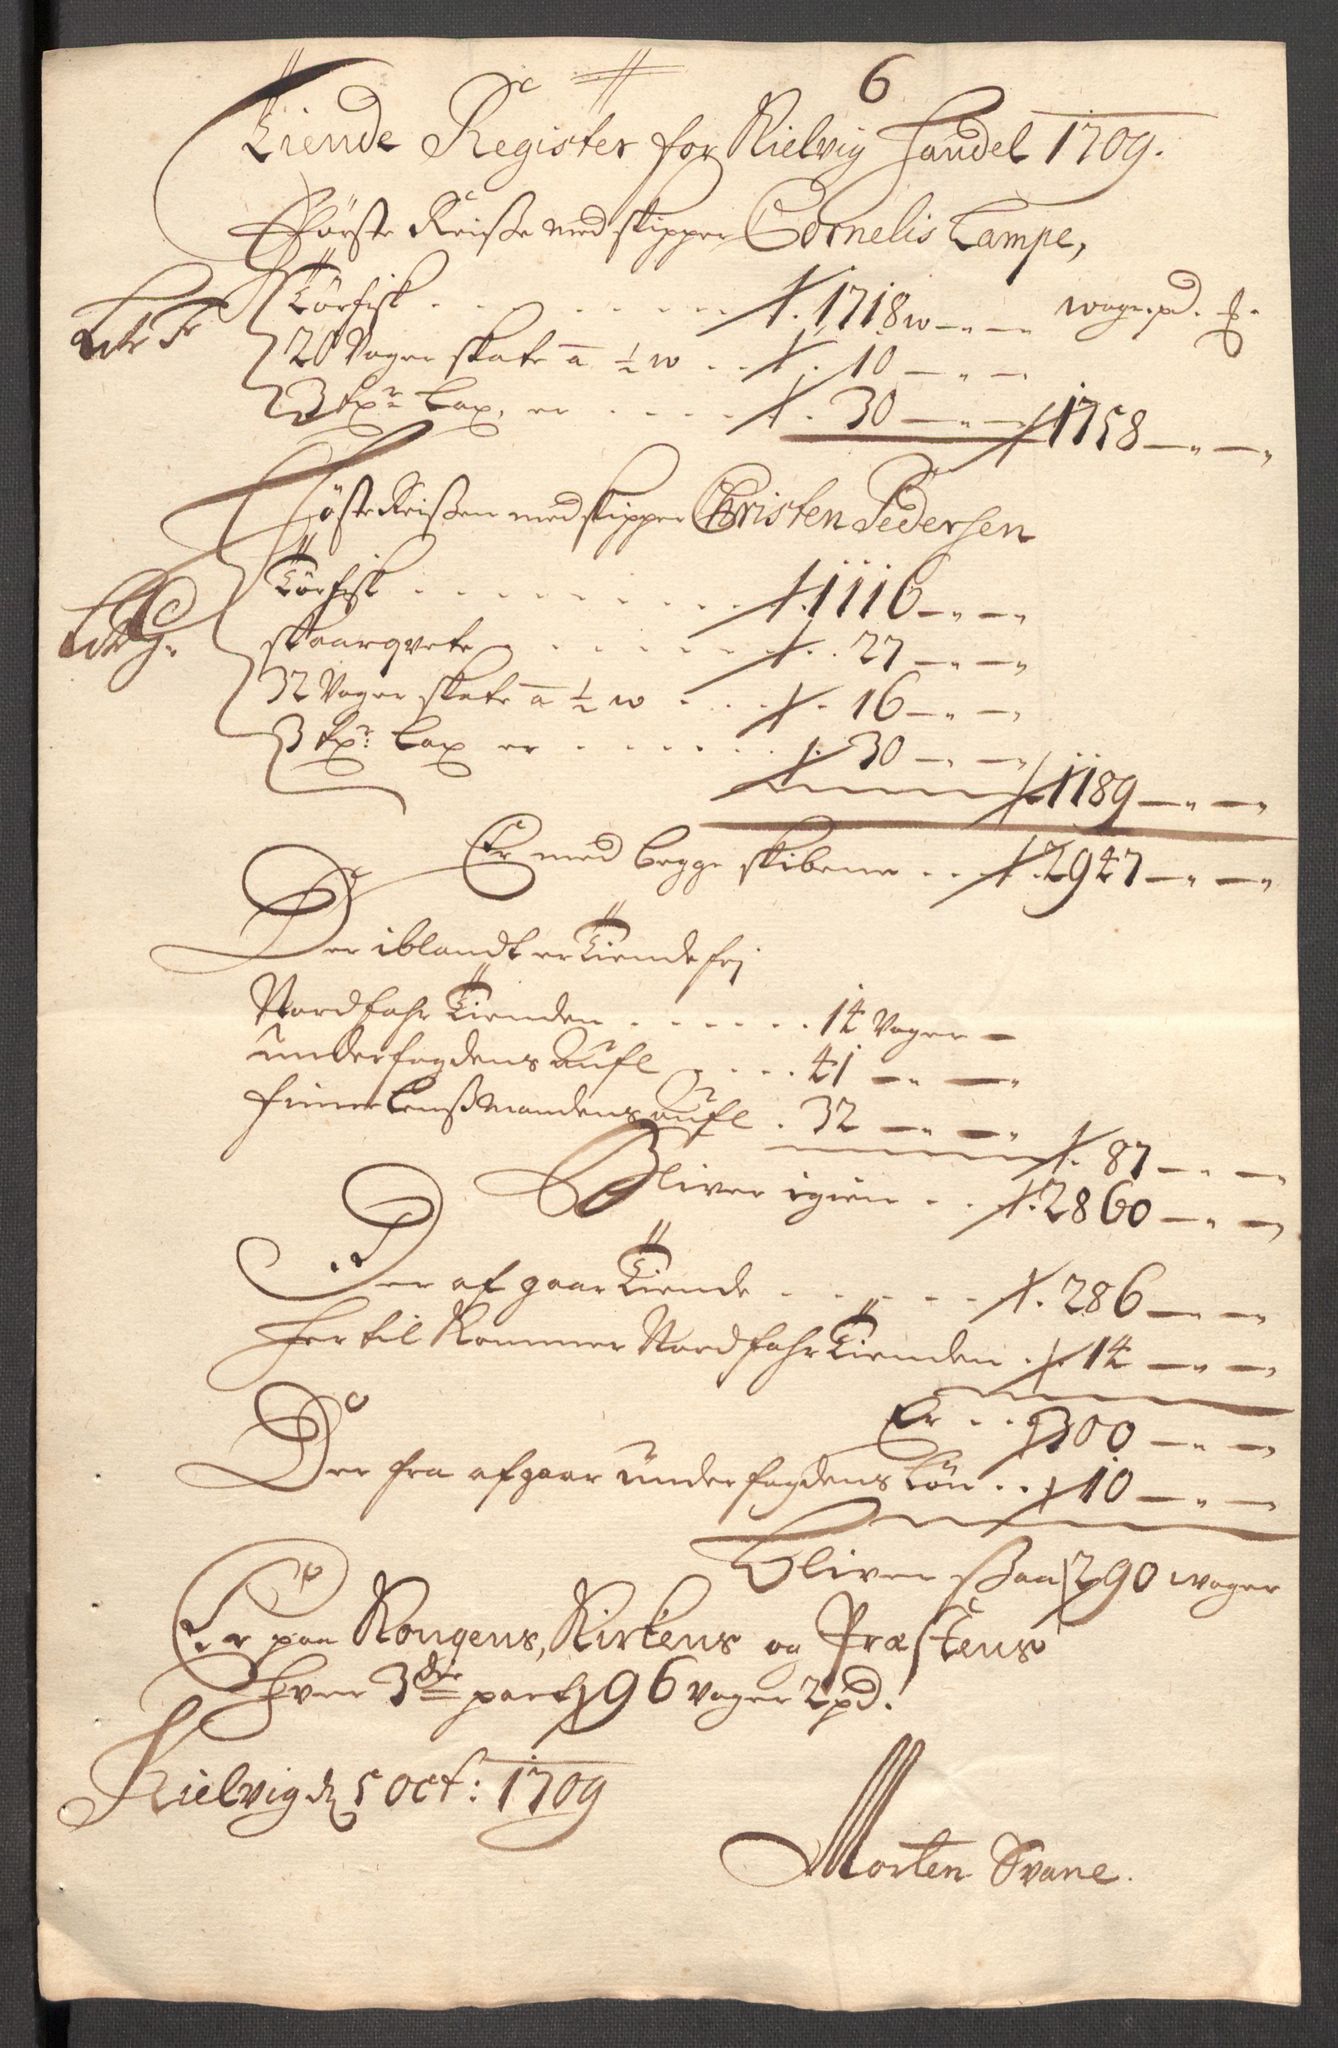 6
Tiende Register for Kielvig Handel 1709.
Förste Reisse med skipper Cornelis Lampe,
wage. pd. 
Törfisk . . . . . . . 1718 w — " —
Litr F
20 Vager skate a ½ w . . . 10 — " —
3 tpr. Lax, er . . . . . 30 — " — 1758 — " — "
Höste Reissen med skipper Christen Pedersen
Törfisk . . . . . . . . . 1116 — " — "
Litr G.
skaarqveite . . . . . . . 27 — " — "
32 Vager skate a ½ w . . . . 16 — " — "
3 tpr: Lax er . . . . . . . 30 — " — "
1189 — " — "
Er med begge skibene . . 2947 — " — "
Der iblandt er Tiende frj
Nordfahr Tienden . . . . . . 14 Vager —
Underfogdens aufl . . . . 41 — " — "
finne Lenssmandens aufl . 32 — " — "
87 — " — "
Bliver igien . . 2860 — " — "
Der af gaar Tiende . . . . . 286 — " — "
Her til Kommer Nordfahr Tienden . 14 — " — "
Er . . 300 — " — "
Der fra afgaar underfogdens Lön . . 10 — " — "
Bliver ssaa 290 wager
Er paa Kongens, Kirkens og Præstens
Hver 3die part 96 Vager 2 pd.
Kielvig d 5 Oct: 1709
Morten Svane.